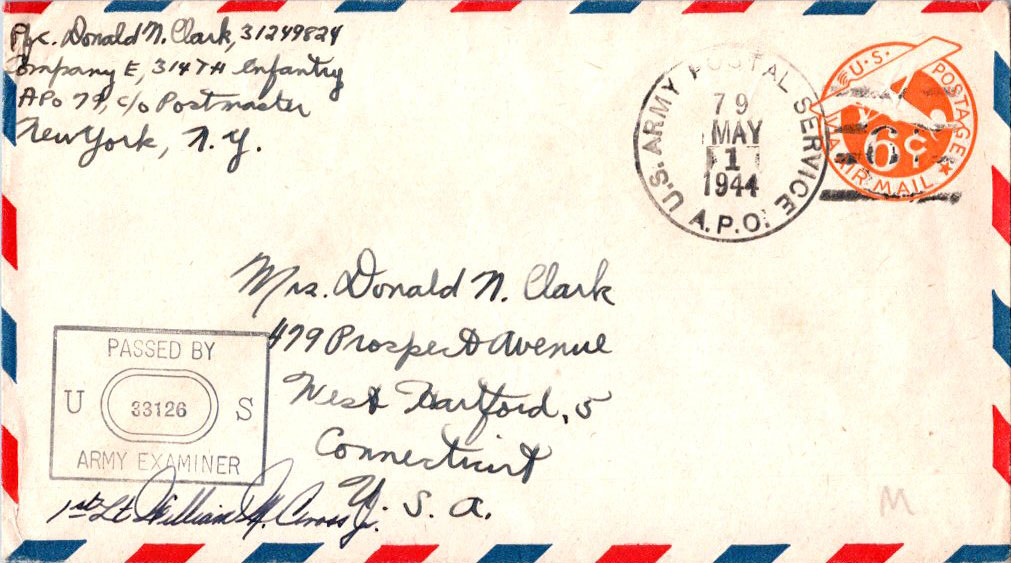 Pfc. Donald N. Clark, 31249824
Company E, 314TH Infantry
APO 79, c/o Postmaster
New York, N.Y.
U.S. ARMY POSTAL SERVICE
79
MAY
1
1944
A.P.O.
U.S. POSTAGE
6¢
VIA AIR MAIL
Mrs. Donald N. Clark
479 Prospect Avenue
West Hartford, 5
Connecticut
U. S. A.
PASSED BY
U 33126 S
ARMY EXAMINER
1st Lt William M. Cross Jr.
M